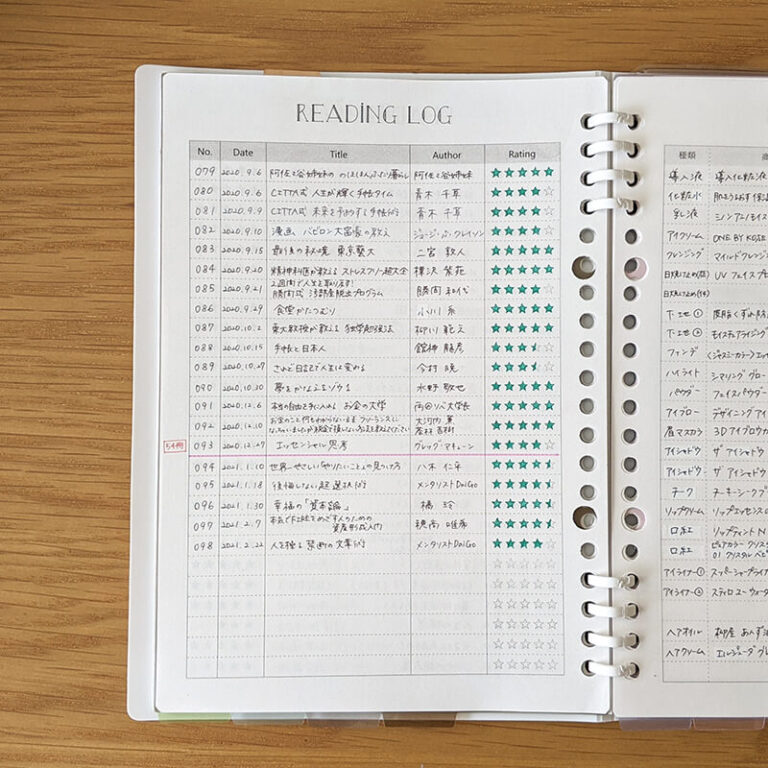 READING LOG
No. Date Title Author Rating
079 2020.9.6 阿佐ヶ谷姉妹の のほほんふたり暮らし 阿佐ヶ谷姉妹
080 2020.9.6 CITTA式 人生が輝く手帳タイム 青木 千草
081 2020.9.9 CITTA式 未来を予約する手帳術 青木 千草
082 2020.9.10 漫画 バビロン大富豪の教え ジョージ・S・クレイソン
083 2020.9.15 最後の秘境 東京藝大 二宮 敦人
084 2020.9.20 精神科医が教える ストレスフリー超大全 樺沢 紫苑
085 2020.9.21 2週間で人生を取り戻す!
勝間式 汚部屋脱出プログラム 勝間 和代
086 2020.9.29 食堂かたつむり 小川 糸
087 2020.10.2 東大教授が教える 独学勉強法 柳川 範之
088 2020.10.15 手帳と日本人 舘神 龍彦
089 2020.10.27 されど日記で人生は変わる 今村 暁
090 2020.10.30 夢をかなえるゾウ 水野 敬也
091 2020.12.6 本当の自由を手に入れる お金の大学 両@リベ大学長
092 2020.12.10 お金のこと何もわからないまま フリーランスに
なっちゃいましたが税金で損しない方法を教えてください 大河内 薫
若林 杏樹
54冊
093 2020.12.27 エッセンシャル思考 グレッグ・マキューン
094 2021.1.10 世界一やさしい「やりたいこと」の見つけ方 八木 仁平
095 2021.1.18 後悔しない超選択術 メンタリストDaiGo
096 2021.1.30 幸福の「資本論」 橘 玲
097 2021.2.7 本気でFIREをめざす人のための
資産形成入門 穂高 唯希
098 2021.2.22 人を操る禁断の文章術 メンタリストDaiGo
種類
導入液 導入化粧液
化粧水
乳液
アイクリーム ONE BY KOSE
クレンジング マイルドクレンジ
UV フェイスプ
下地①
下地② モイスチュアライジング
ファンデ <ジャスミーカラー>エッセン
ハイライト シマリング グロー
パウダー フェイスパウダー
アイブロー デザイニングア
眉マスカラ 3Dアイブロウカ
アイシャドウ ザ アイシャド
アイシャドウ ザ アイシャド
チーク チーキーシークブ
リップクリーム リップエッセンス
口紅 リップティントN
口紅 ピュアカラー クリス
01 クリスタル ベビ
アイライナー① スーパーシャープライナ
アイライナー②
ヘアオイル 柳屋 あんず油
ヘアクリーム エルジューダ グレ